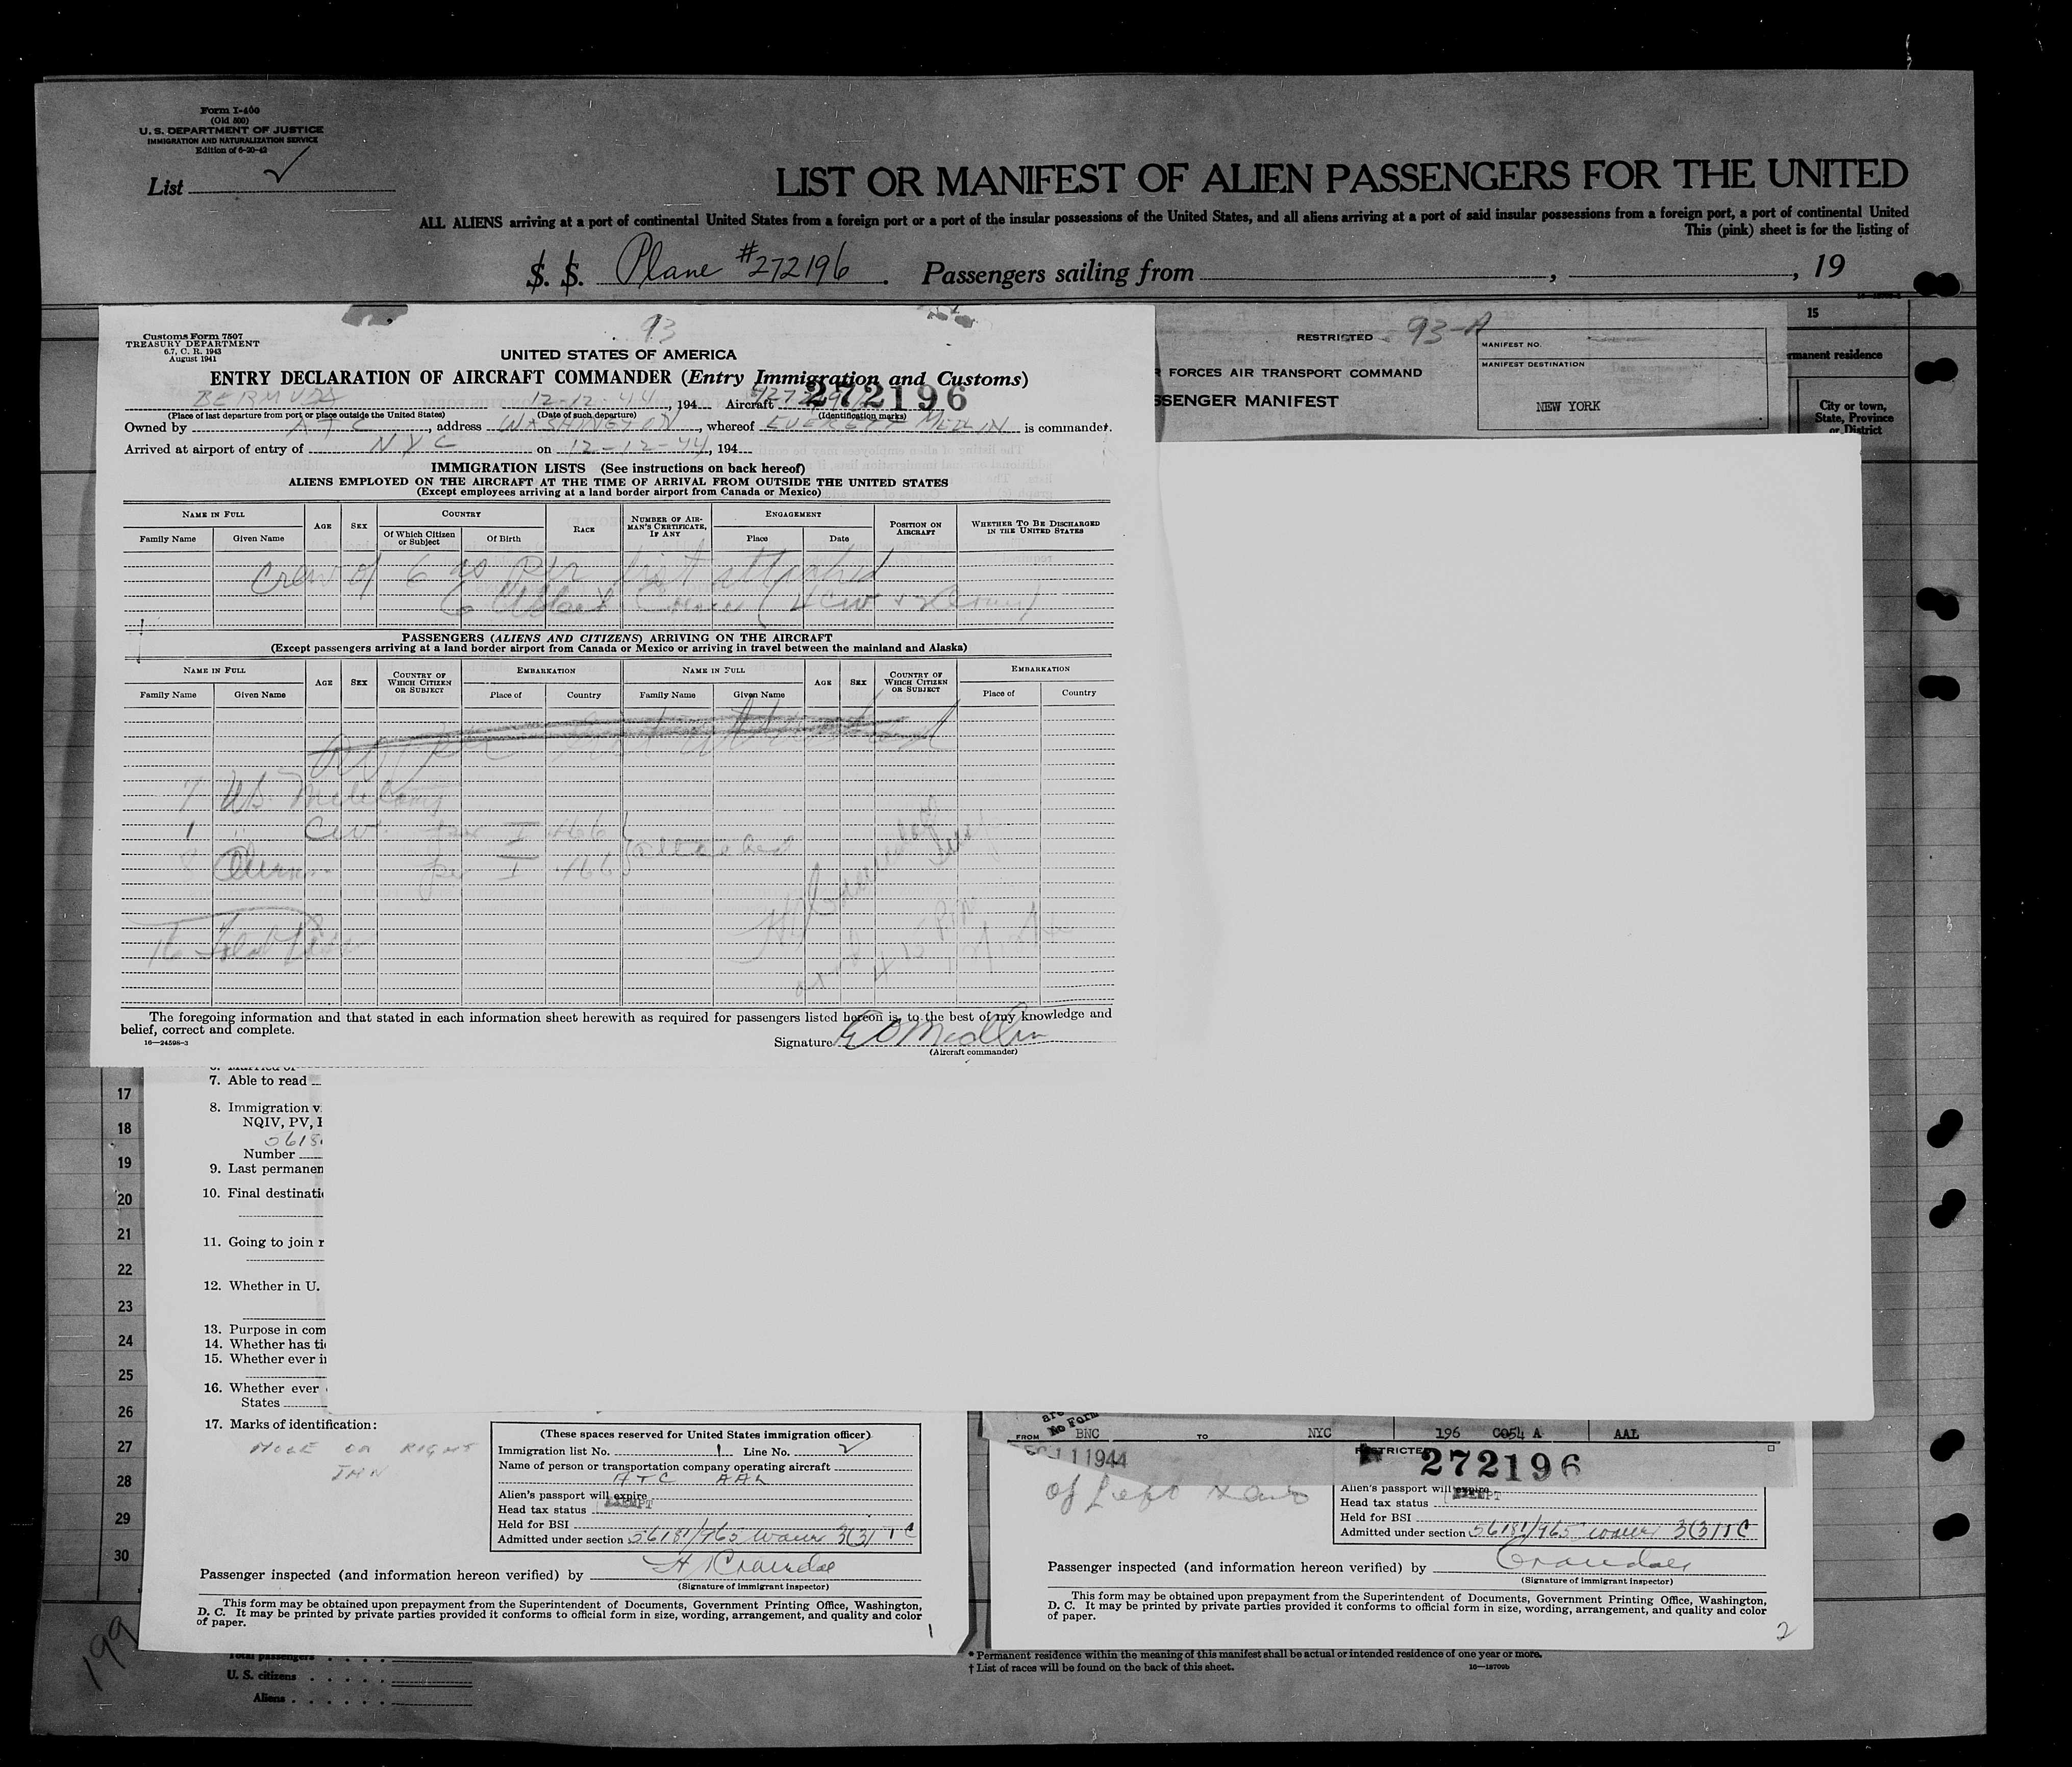 Form I-400
(Old 500)
U. S. DEPARTMENT OF JUSTICE
IMMIGRATION AND NATURALIZATION SERVICE
Edition of 6-20-42
List
LIST OR MANIFEST OF ALIEN PASSENGERS FOR THE UNITED
ALL ALIENS arriving at a port of continental United States from a foreign port or a port of the insular possessions of the United States, and all aliens arriving at a port of said insular possessions from a foreign port, a port of continental United
This (pink) sheet is for the listing of
S. S. Plane #272196. Passengers sailing from , , 19
15
rmanent residence
City or town, State, Province or District
RESTRICTED 93-A
MANIFEST NO.
MANIFEST DESTINATION
FORCES AIR TRANSPORT COMMAND
SSENGER MANIFEST
NEW YORK
93
Customs Form 7507
TREASURY DEPARTMENT
6.7, C. R. 1943
August 1941
UNITED STATES OF AMERICA
ENTRY DECLARATION OF AIRCRAFT COMMANDER (Entry Immigration and Customs)
BERMUDA 12-12-44, 194 Aircraft 272196
(Place of last departure from port or place outside the United States) (Date of such departure) (Identification marks)
Owned by ATC, address WASHINGTON, whereof EVERETT MEDLIN is commander.
Arrived at airport of entry of NYC on 12-12-44, 194
IMMIGRATION LISTS (See instructions on back hereof)
ALIENS EMPLOYED ON THE AIRCRAFT AT THE TIME OF ARRIVAL FROM OUTSIDE THE UNITED STATES
(Except employees arriving at a land border airport from Canada or Mexico)
NAME IN FULL AGE SEX COUNTRY RACE NUMBER OF AIRMAN'S CERTIFICATE, IF ANY ENGAGEMENT POSITION ON AIRCRAFT WHETHER TO BE DISCHARGED IN THE UNITED STATES
Family Name Given Name Of Which Citizen or Subject Of Birth Place Date
Crew of 6 as per list attached
6
PASSENGERS (ALIENS AND CITIZENS) ARRIVING ON THE AIRCRAFT
(Except passengers arriving at a land border airport from Canada or Mexico or arriving in travel between the mainland and Alaska)
NAME IN FULL AGE SEX COUNTRY OF WHICH CITIZEN OR SUBJECT EMBARKATION NAME IN FULL AGE SEX COUNTRY OF WHICH CITIZEN OR SUBJECT EMBARKATION
Family Name Given Name Place of Country Family Name Given Name Place of Country
7 US. Military
1 " Civ. per I 466
8 Aliens per I 466 attached
16 Total Pass
The foregoing information and that stated in each information sheet herewith as required for passengers listed hereon is, to the best of my knowledge and
belief, correct and complete.
16—24598-3
Signature E O Medlin
(Aircraft commander)
17
18
19
20
21
22
23
24
25
26
27
28
29
30
7. Able to read
8. Immigration v
NQIV, PV,
Number
9. Last permanen
10. Final destinati
11. Going to join r
12. Whether in U.
13. Purpose in com
14. Whether has ti
15. Whether ever i
16. Whether ever
States
17. Marks of identification:
MOLE ON RIGHT
(These spaces reserved for United States immigration officer)
Immigration list No. 1 Line No. 2
Name of person or transportation company operating aircraft
ATC AAL
Alien's passport will expire
Head tax status EXEMPT
Held for BSI
Admitted under section 56181/765 waiver 3(3) T C
Passenger inspected (and information hereon verified) by H Crandall
(Signature of immigrant inspector)
This form may be obtained upon prepayment from the Superintendent of Documents, Government Printing Office, Washington,
D. C. It may be printed by private parties provided it conforms to official form in size, wording, arrangement, and quality and color
of paper.
1
No Form
FROM BNC TO NYC 196 C054 A AAL
DEC 11 1944
RESTRICTED
272196
of Left
Alien's passport will expire
Head tax status EXEMPT
Held for BSI
Admitted under section 56181/765 waiver 3(3) T C
Passenger inspected (and information hereon verified) by Crandall
(Signature of immigrant inspector)
This form may be obtained upon prepayment from the Superintendent of Documents, Government Printing Office, Washington,
D. C. It may be printed by private parties provided it conforms to official form in size, wording, arrangement, and quality and color
of paper.
2
199
Total passengers
U. S. citizens
Aliens
* Permanent residence within the meaning of this manifest shall be actual or intended residence of one year or more.
† List of races will be found on the back of this sheet.
16—18709b